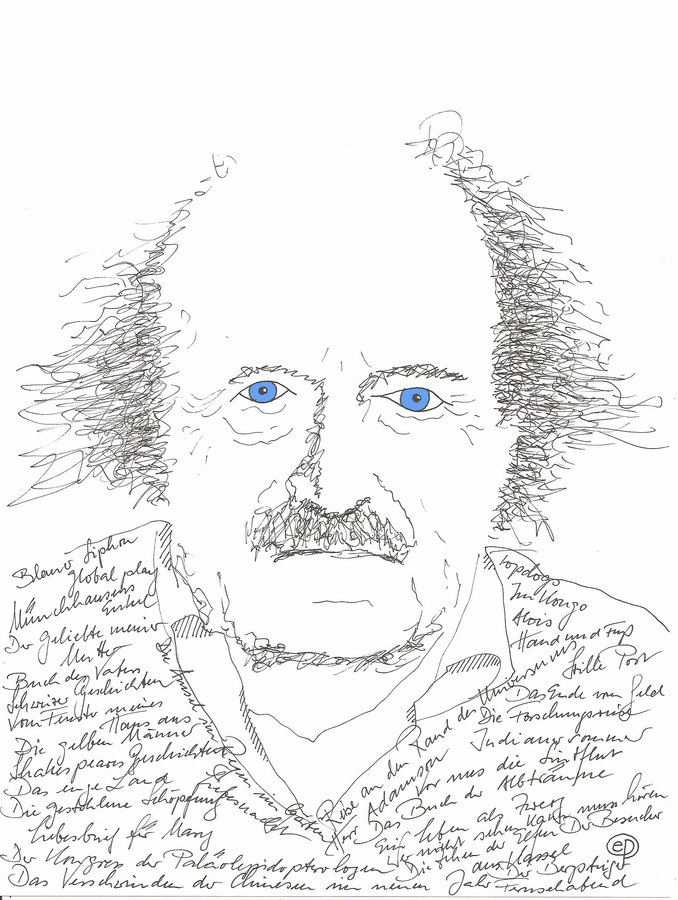 Blauer Siphon
global play
Münchhausens
Enkel
Der Geliebte meiner
Mutter
Buch des Vaters
Schweizer Geschichten
Vom Fenster meines
Haus aus
Die gelben Männer
Shakespeares Geschichten
Das enge Land
Die gestohlene Schöpfung
Liebesbrief für Mary
Der Kongress der Paläolepidopterologen
Das Verschwinden der Chinesen im neuen Jahr
Die Amsel im Regen im Garten
Liebesnacht
topdogs
Im Kongo
Alois
Hand und Fuß
Stille Post
Das Ende vom Geld
Die Forschungsreise
Indianersommer
Reise an den Rand des Universums
Herr Adamson
Vor uns die Sintflut
Das Buch der Albträume
Ein Leben als Zwerg
Wer nicht sehen kann muss hören
Die Sirenen der
Der Besucher
aus Kassel
Der Bergsteiger
Fernsehabend
eP